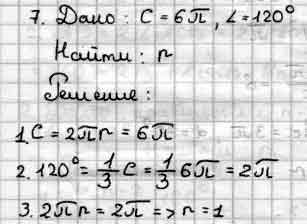 7. Дано: C = 6π, ∠ = 120°
Найти: r
Решение:
1. C = 2πr = 6π
2. 120° = 1/3 C = 1/3 6π = 2π
3. 2πr = 2π => r = 1